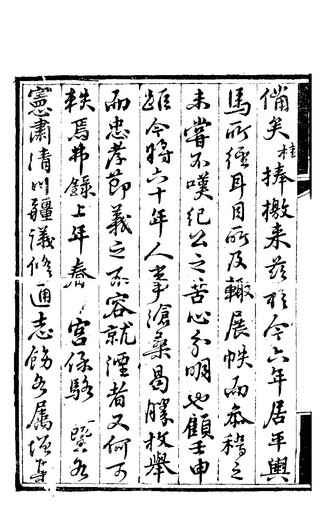 備矣桂捧檄来茲於今六年居平輿
馬所經耳目所及輒展帙而叅稽之
未嘗不嘆紀公之苦心分明也顧壬申
距今將六十年人事滄桑曷勝枚舉
而忠孝節義之不容就湮者又何可
軼焉弗錄上年春 宮保駱 暨各
憲肅清川疆議修通志飭各屬增集